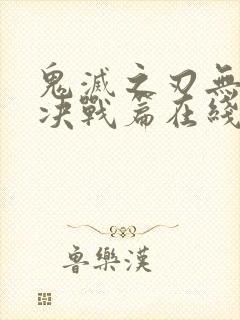 鬼滅之刃無
決戰篇在綫
魯樂漢